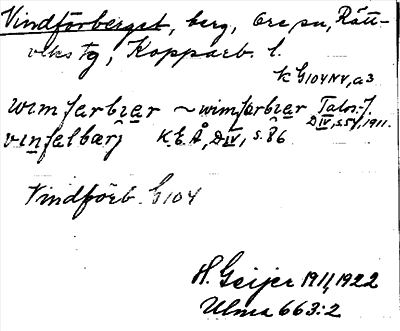 Vindförberget, berg, Ore sn, Rätt-
viks tg, Kopparb. l.
k G104NV, a3
wimferbrær ~ wimførbrær Talos. J.
DIV, s.54, 1911.
vinfelbærj K.E.Å, DIV, s.86
Vindförb. G104
H. Geijer 1911, 1922
Ulma 663:2